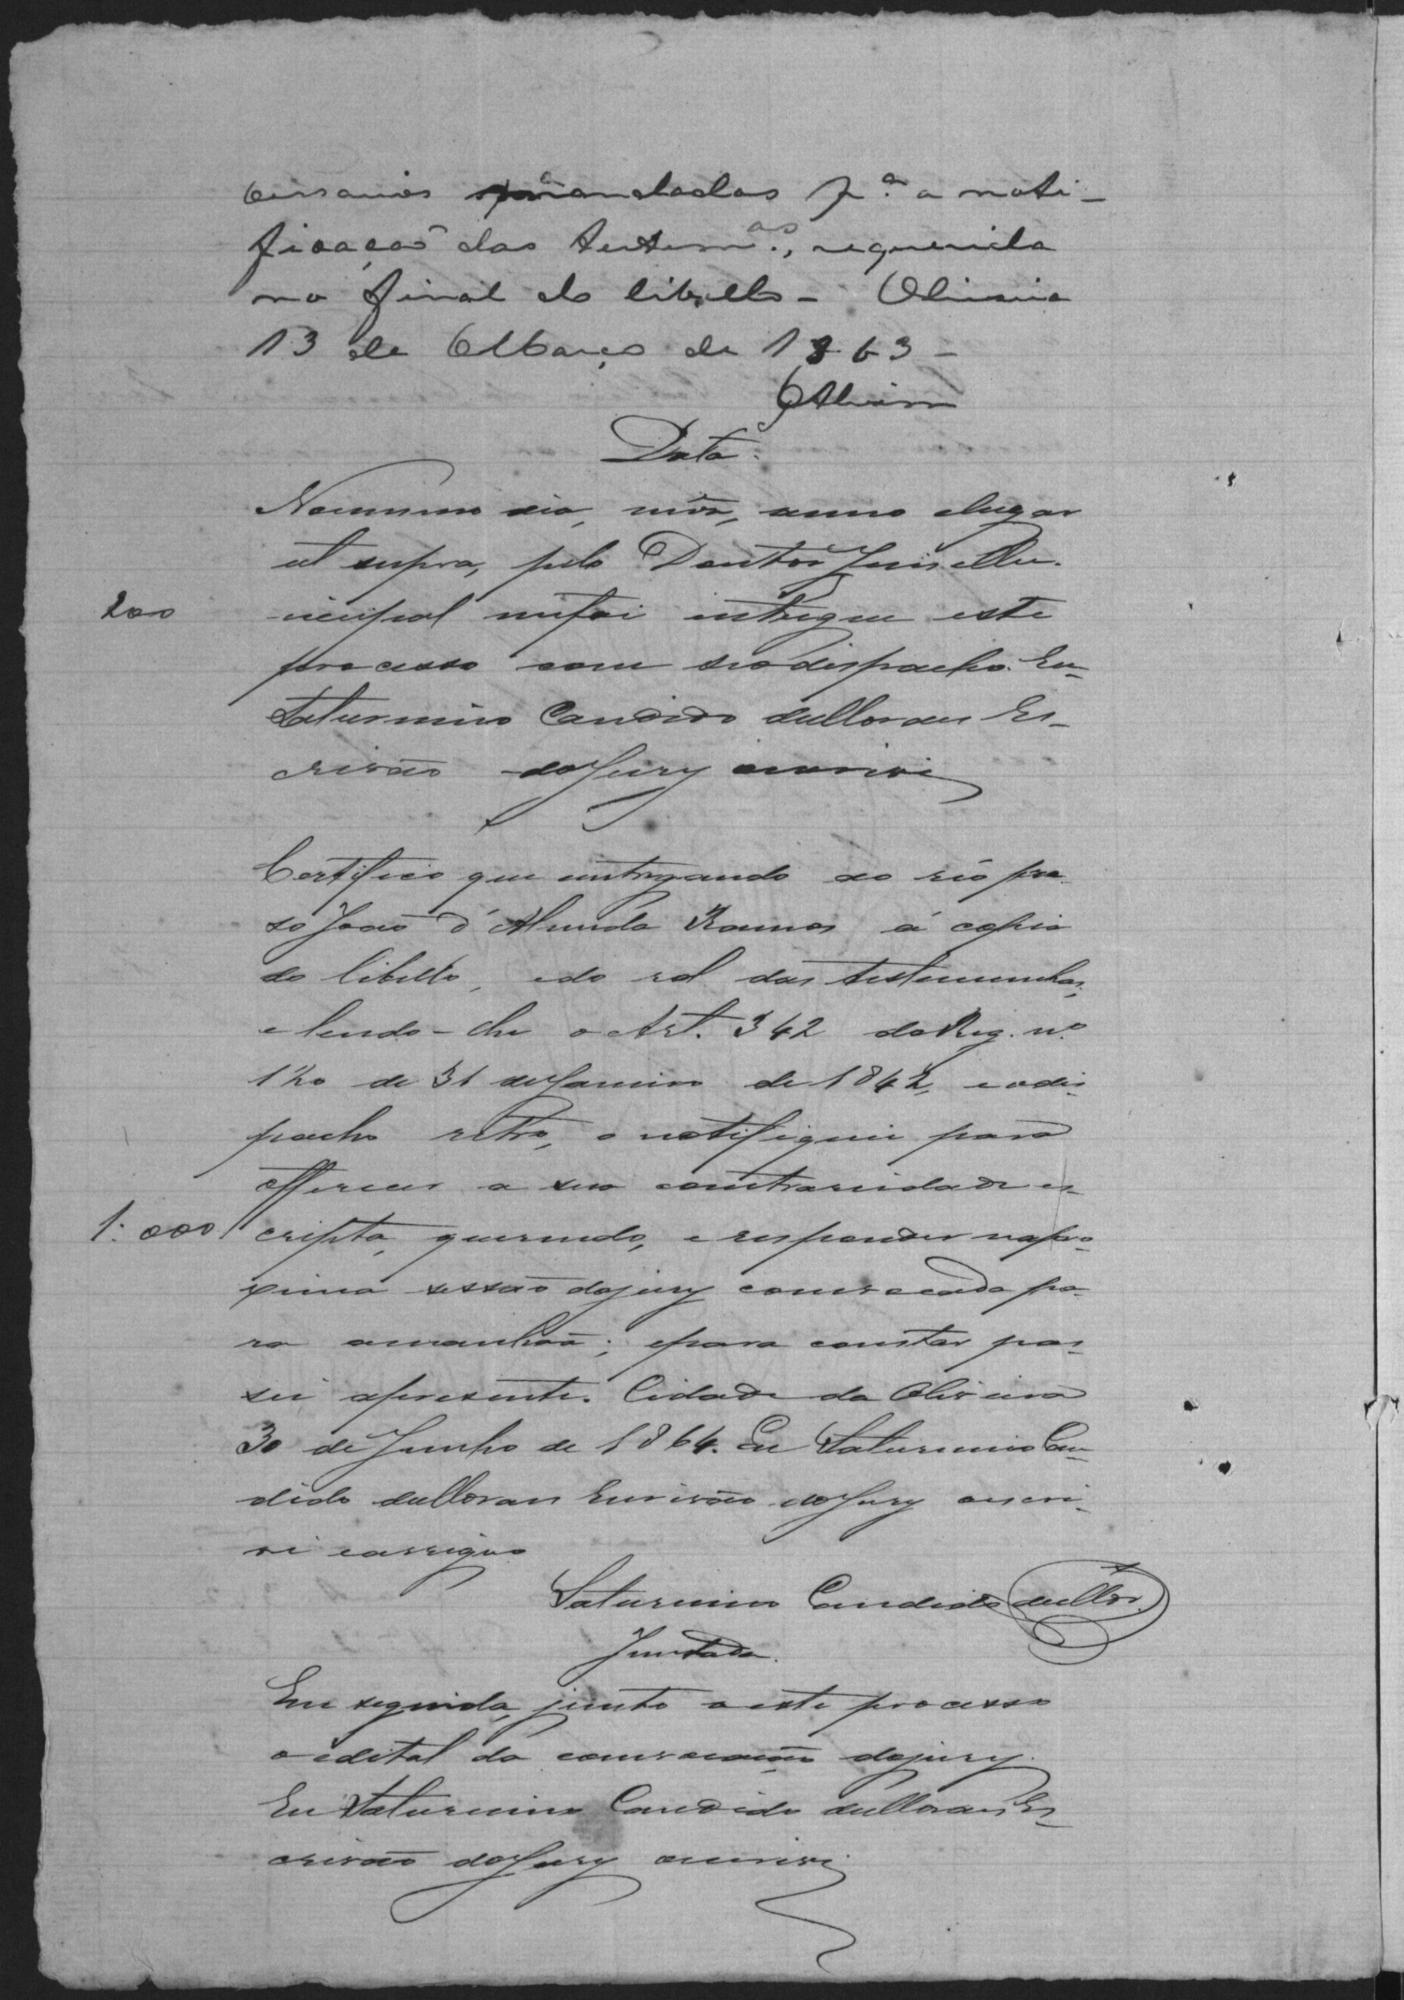 cessarios mandados p.ª a noti-
ficação das testem.as, requerida
no final do libello - Oliveira
13 de Março de 1863 -
Alvim
Data.
No mesmo dia, mês, anno elugar
ut supra, pelo Doutor Juis Mu-
200
nicipal mefoi entregue este
processo com seo dispacho. Eu
Saturnino Candido deMoraes Es-
crivão doJury escrivi
Certifico que entregando ao réo pre-
so João d'Almeida Ramos á copia
do libello, edo rol das testemunhas,
e lendo-lhe o Art. 342 do Reg. nº
120 de 31 deJaneiro de 1842, e odis-
pacho retro, o notifiquei para
offerecer a sua contrariedade es-
1:000
cripta, querendo, e responder napro-
xima sessão dojury convocada pa-
ra amanhaã; epara constar pas-
sei apresente. Cidade da Oliveira
30 deJunho de 1864. Eu Saturnino Can-
dido deMoraes Escrivão doJury escri-
vi eassigno
Saturnino Candido deMor.
Juntada.
Em seguida, junto a este processo
o edital da convocação dojury.
Eu Saturnino Candido deMoraes Es-
crivão doJury escrivi